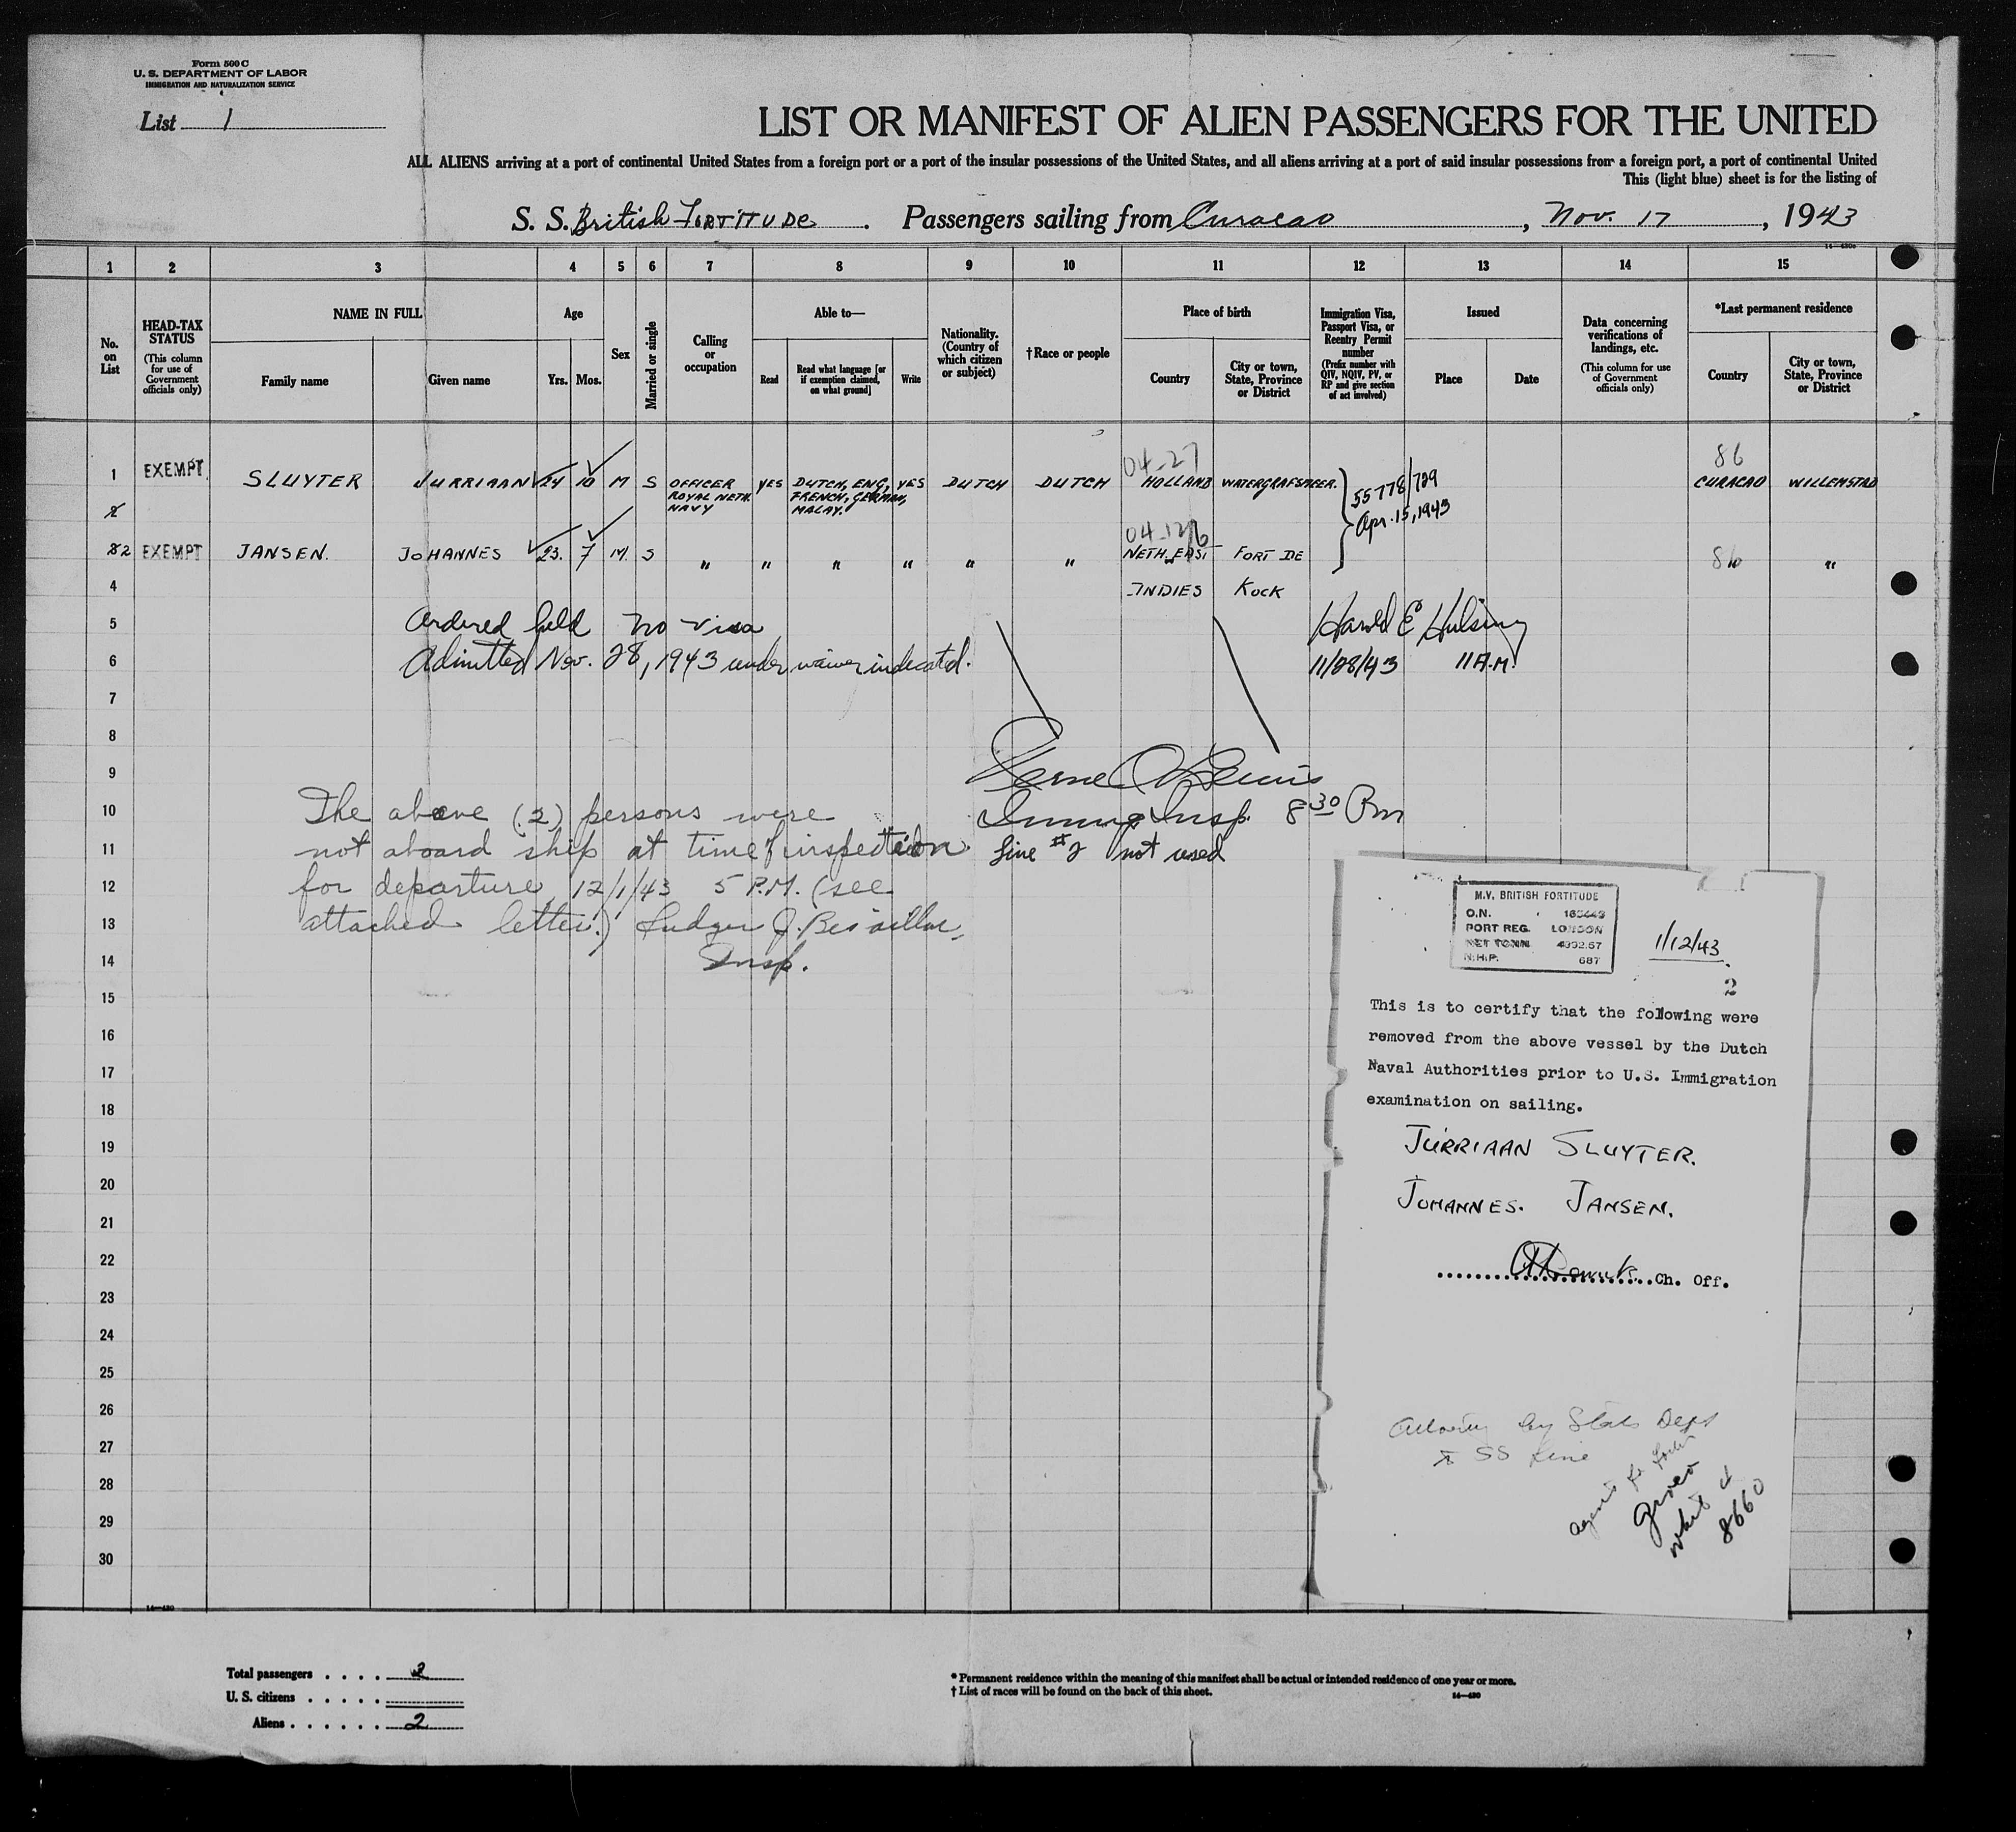 Form 500 C
U. S. DEPARTMENT OF LABOR
IMMIGRATION AND NATURALIZATION SERVICE
List 1
LIST OR MANIFEST OF ALIEN PASSENGERS FOR THE UNITED
ALL ALIENS arriving at a port of continental United States from a foreign port or a port of the insular possessions of the United States, and all aliens arriving at a port of said insular possessions from a foreign port, a port of continental United
This (light blue) sheet is for the listing of
S. S. British FORTITUDE. Passengers sailing from Curacao, Nov. 17, 1943
1 2 3 4 5 6 7 8 9 10 11 12 13 14 15
No. on List
HEAD-TAX STATUS
(This column for use of Government officials only)
NAME IN FULL
Family name
Given name
Age
Yrs.
Mos.
Sex
Married or single
Calling or occupation
Able to—
Read
Read what language [or if exemption claimed, on what ground]
Write
Nationality. (Country of which citizen or subject)
†Race or people
Place of birth
Country
City or town, State, Province or District
Immigration Visa, Passport Visa, or Reentry Permit number
(Prefix number with QIV, NQIV, PV, or RP and give section of act involved)
Issued
Place
Date
Data concerning verifications of landings, etc.
(This column for use of Government officials only)
*Last permanent residence
Country
City or town, State, Province or District
04-27
86
1 EXEMPT SLUYTER JURRIAAN 24 10 M S OFFICER ROYAL NETH. NAVY YES DUTCH, ENG, FRENCH, GERMAN, MALAY. YES DUTCH DUTCH HOLLAND WATERGRAFSMEER. 55778/729 Apr. 15, 1943 CURACAO WILLEMSTAD
2
2 EXEMPT JANSEN. JOHANNES 23. 7 M. S " " " " " " NETH. EAST FORT DE 86 "
4 INDIES KOCK
5 Ordered held no visa Harold E Hulsing
6 Admitted Nov. 28, 1943 under waiver indicated. 11/28/43 11 A.M.
7
8
9
10 The above (2) persons were Immig Insp. 8 30 Pm
11 not aboard ship at time of inspection Line #2 not used
12 for departure, 12/1/43 5 P.M. (see
13 attached letter.)
14 Insp.
15
16
17
18
19
20
21
22
23
24
25
26
27
28
29
30
M.V. BRITISH FORTITUDE
O.N. 165449
PORT REG. LONDON
NET TONN. 4992.67
N.H.P. 687
1/12/43
2
This is to certify that the following were
removed from the above vessel by the Dutch
Naval Authorities prior to U.S. Immigration
examination on sailing.
JURRIAAN SLUYTER.
JOHANNES. JANSEN.
Ch. Off.
by State Dept
SS Line
8660
14—430
Total passengers . . . . 2
U. S. citizens . . . . .
Aliens . . . . . . 2
* Permanent residence within the meaning of this manifest shall be actual or intended residence of one year or more.
† List of races will be found on the back of this sheet.
14—430